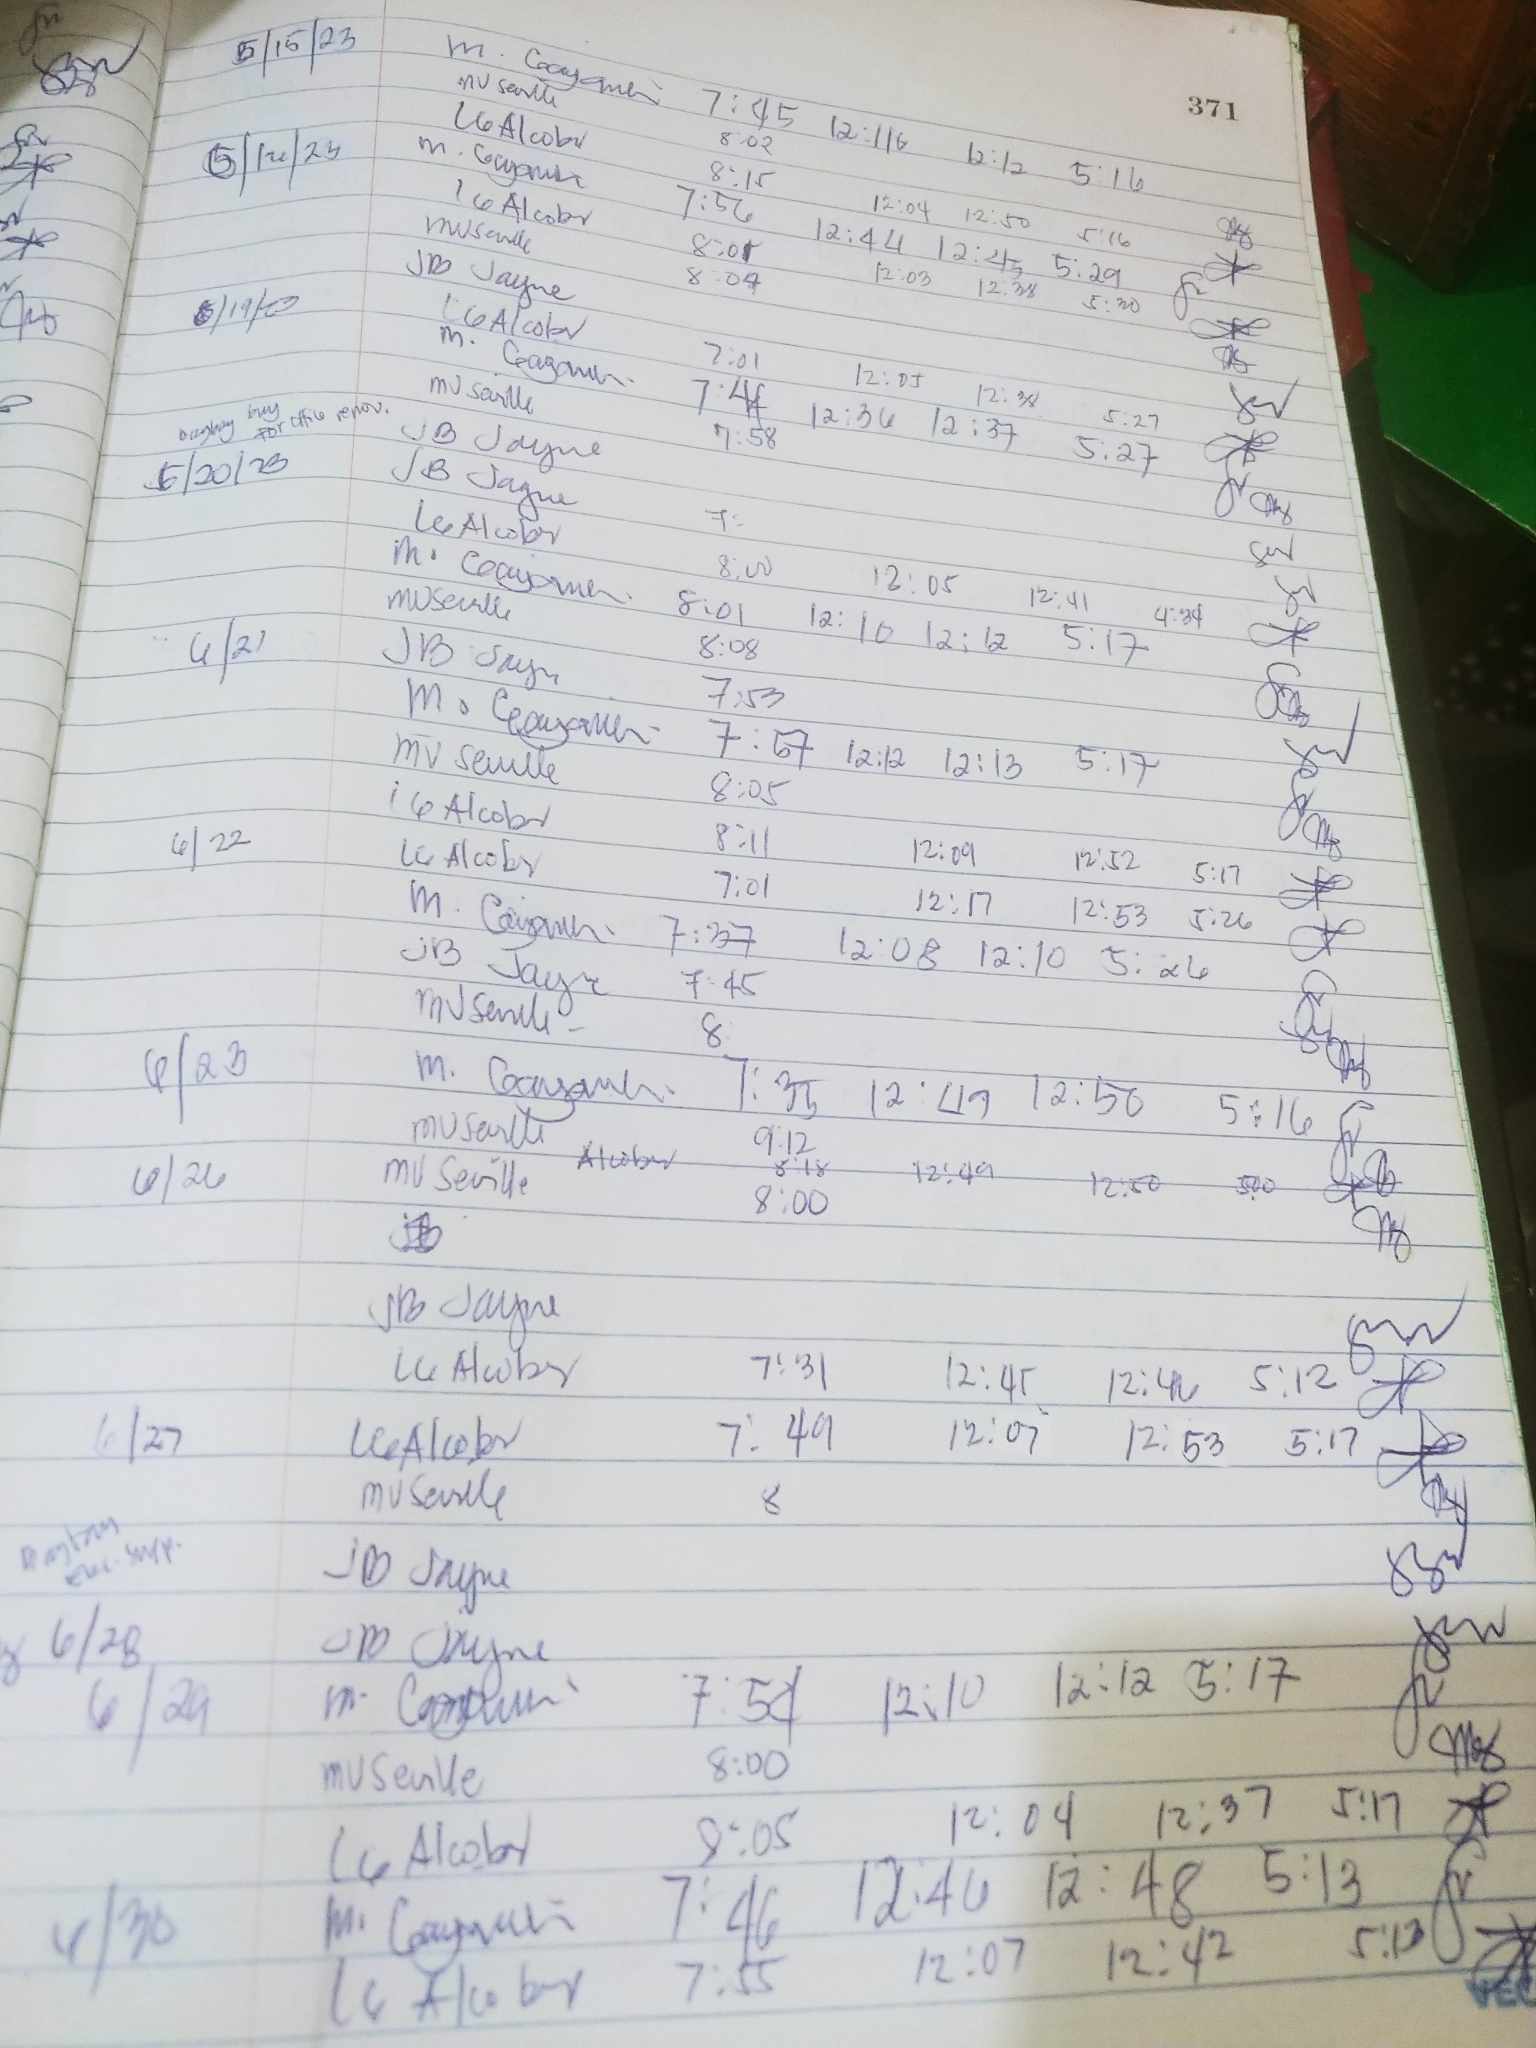 371
5/15/23 M. Caayaman 7:45 12:116 12:12 5:16
MV Seville 8:02
LG Alcober 8:15 12:04 12:50 5:16
5/16/23 M. Caayaman 7:56 12:44 12:45 5:29
LG Alcober 8:01 12:03 12:38 5:30
MV Seville 8:04
JB Jayne
5/19/23 LG Alcober 7:01 12:05 12:38 5:27
M. Caayaman 7:44 12:36 12:37 5:27
MV Seville 7:58
buy for office renov. JB Jayne
5/20/23 JB Jayne 7:
LG Alcober 8:00 12:05 12:41 4:34
M. Caayaman 8:01 12:10 12:12 5:17
MV Seville 8:08
6/21 JB Jayne 7:53
M. Caayaman 7:57 12:12 12:13 5:17
MV Seville 8:05
LG Alcober 8:11 12:09 12:52 5:17
6/22 LG Alcober 7:01 12:17 12:53 5:26
M. Caayaman 7:37 12:08 12:10 5:26
JB Jayne 7:45
MV Seville - 8
6/23 M. Caayaman 7:35 12:49 12:50 5:16
MV Seville 9:12
Alcober 8:18 12:49 12:50 5:00
6/26 MV Seville 8:00
JB
JB Jayne
LG Alcober 7:31 12:45 12:46 5:12
6/27 LG Alcober 7:49 12:07 12:53 5:17
MV Seville 8
JB Jayne
6/28 JB Jayne
6/29 M. Caayaman 7:54 12:10 12:12 5:17
MV Seville 8:00
LG Alcober 8:05 12:04 12:37 5:17
6/30 M. Caayaman 7:46 12:46 12:48 5:13
LG Alcober 7:55 12:07 12:42 5:13
VEC